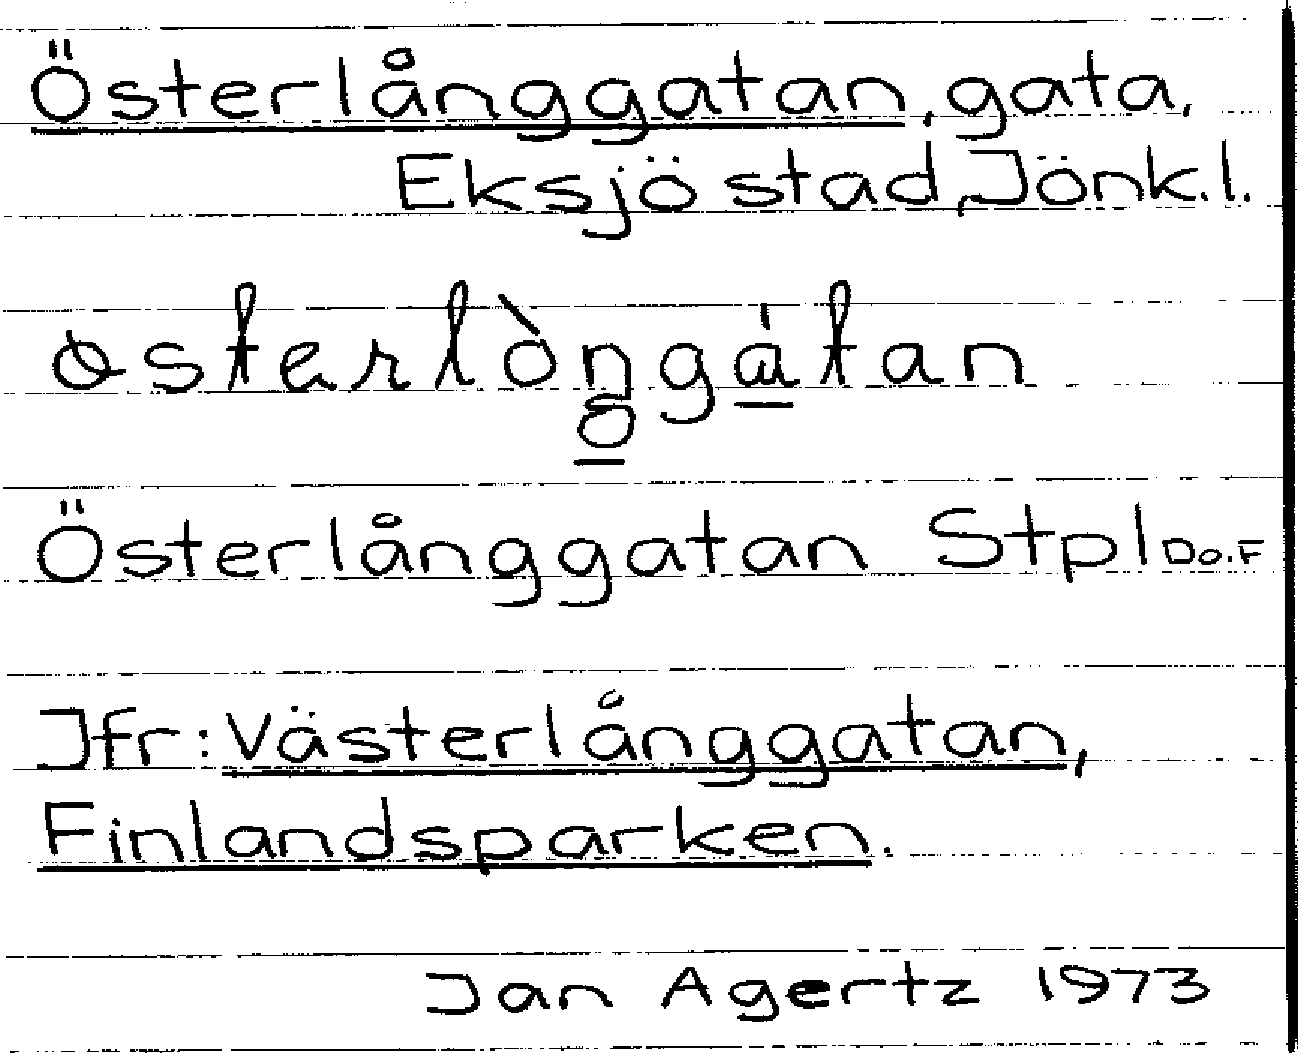 Österlånggatan, gata,
Eksjö stad, Jönk.l.
Österlånggatan Stpl Do.F
Jfr: Västerlånggatan,
Finlandsparken.
Jan Agertz 1973